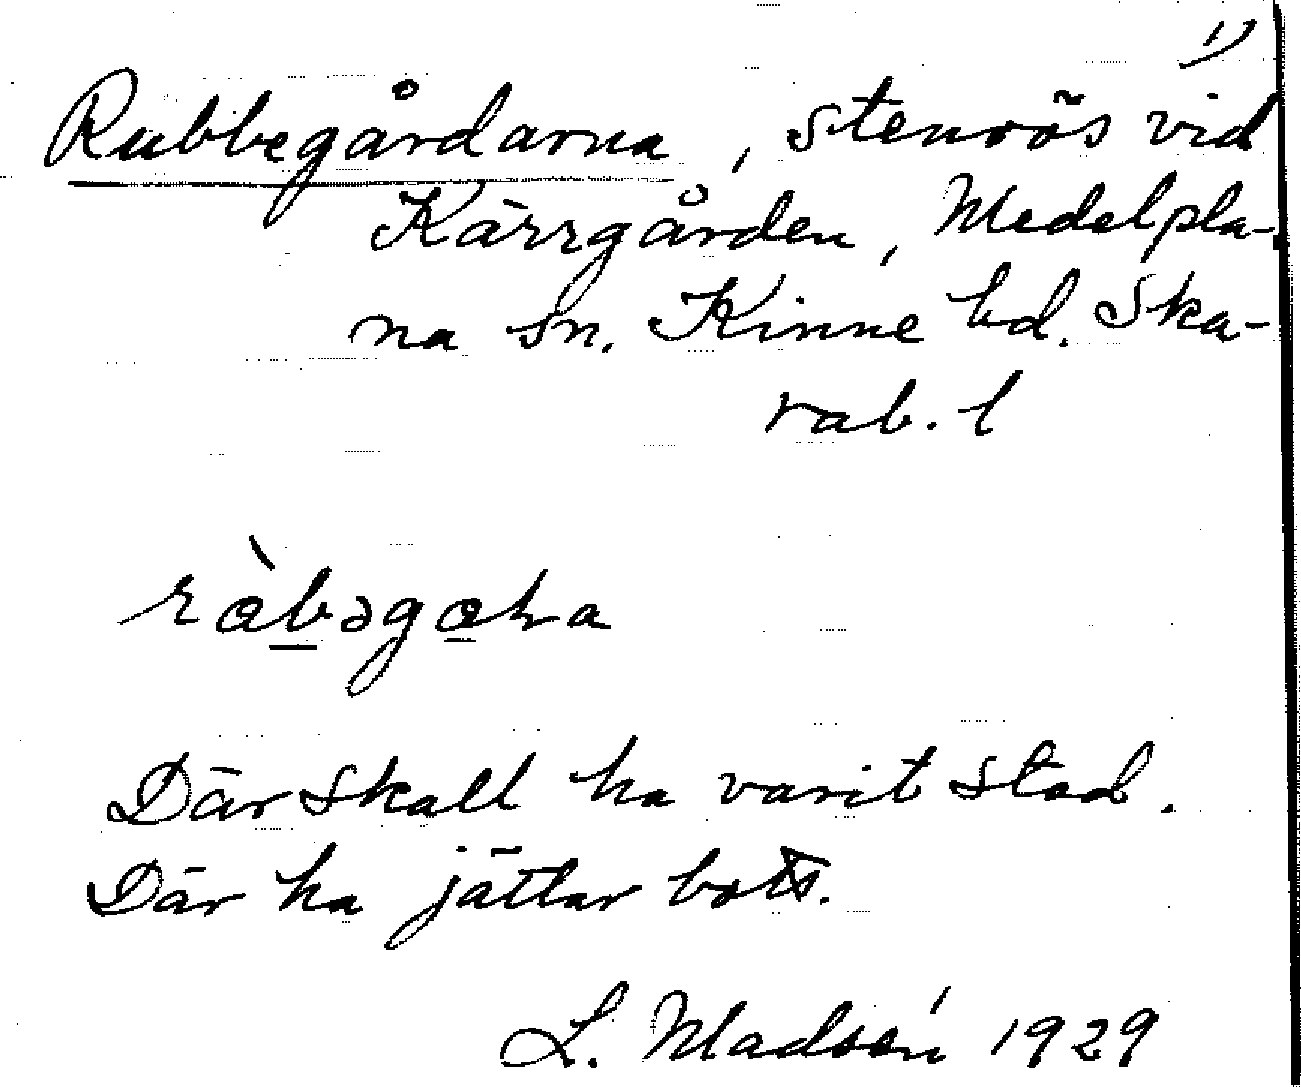 1)
Rubbegårdarna, stenrös vid
Kärrgården, Medelpla-
na sn. Kinne hd. Ska-
rab. l
Där skall ha varit stad.
Där ha jättar bott.
L. Madsén 1929